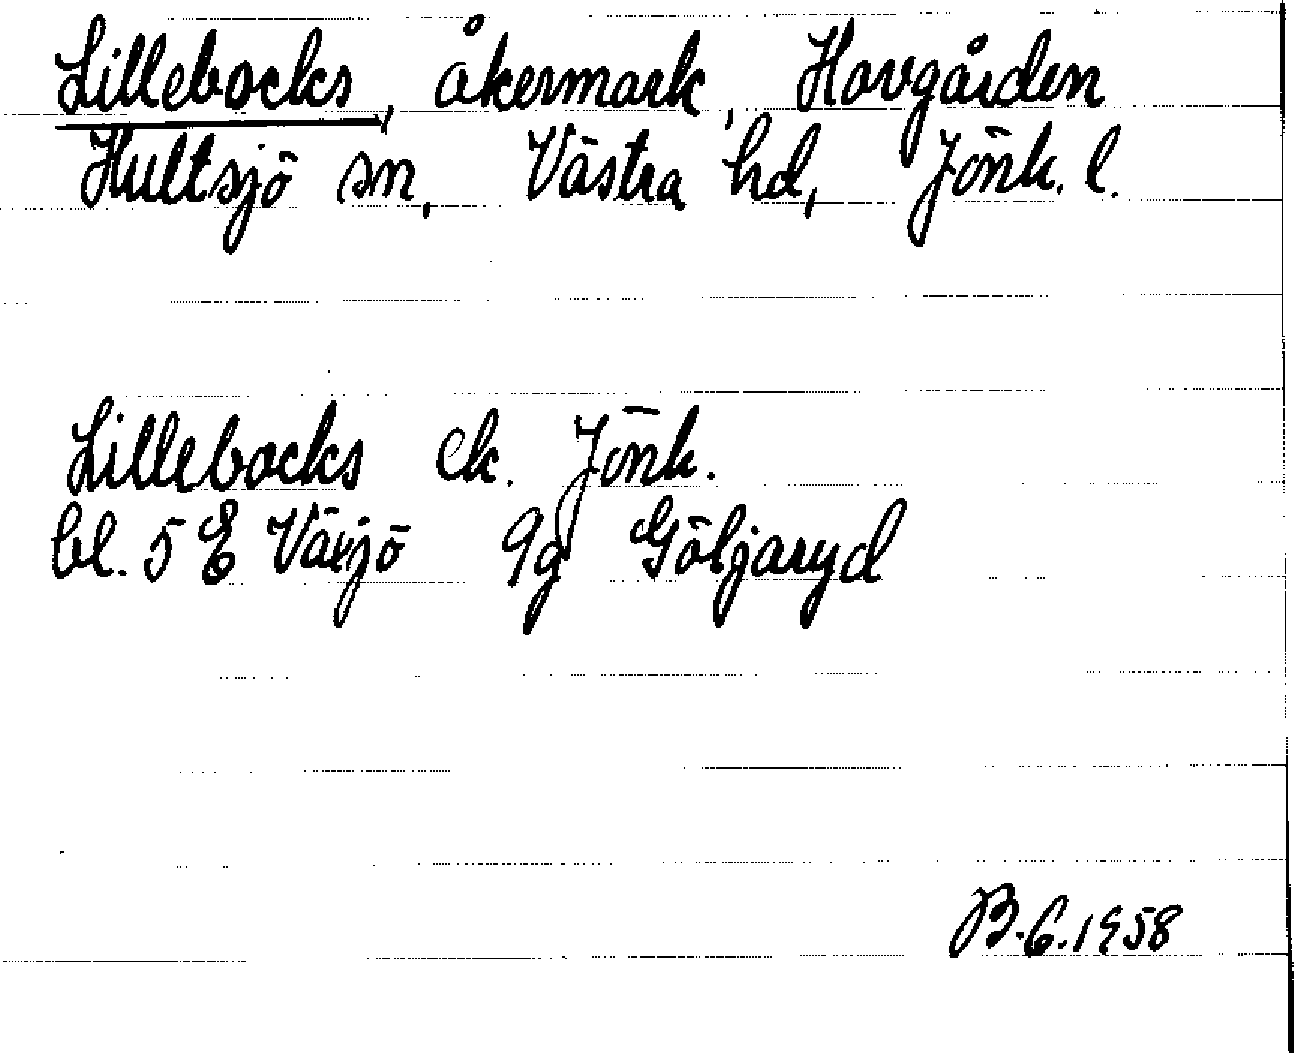 Lillebocks, åkermark, Hovgården
Hultsjö sn, Västra hd, Jönk. l.
Lillebocks ek. Jönk.
bl. 5 E Växjö 9g Göljaryd
B.6.1958